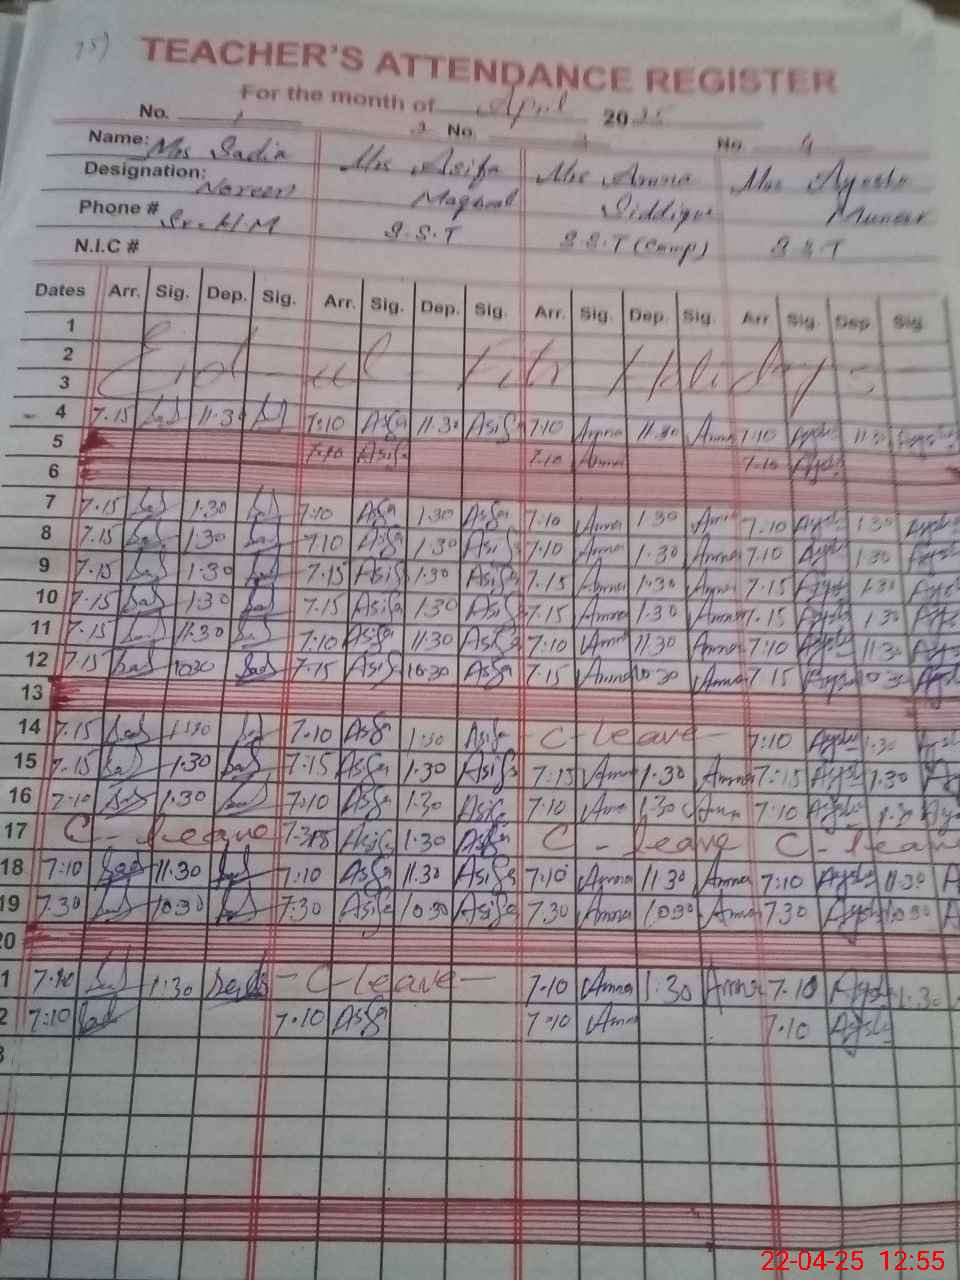 75)
TEACHER'S ATTENDANCE REGISTER
For the month of April 2025
No. 1 2 No. 3 No. 4
Name: Mrs Sadia Mrs Asifa Mrs Amna Mrs Ayesha
Designation: Noreen Maqbool Siddique Muneer
Phone # Sr. H.M S.S.T S.S.T (Comp) S.S.T
N.I.C #
Dates Arr. Sig. Dep. Sig. Arr. Sig. Dep. Sig. Arr. Sig. Dep. Sig. Arr Sig. Dep Sig
1 Eid-ul-Fitr Holidays
2
3
4 7.15 Sad 11.30 Sad 7:10 Asifa 11.30 Asifa 7.10 Amna 11.30 Amna 7:10 Aysha 11.30 Aysha
5 7.10 Asifa 7.10 Amna 7.10 Aysha
6
7 7.15 Sad 1.30 Sad 7:10 Asifa 1.30 Asifa 7:10 Amna 1.30 Amna 7:10 Aysha 1.30 Aysha
8 7.15 Sad 1.30 Sad 7.10 Asifa 1.30 Asifa 7.10 Amna 1.30 Amna 7.10 Aysha 1.30 Aysha
9 7.15 Sad 1.30 Sad 7.15 Asifa 1.30 Asifa 7.15 Amna 1.30 Amna 7.15 Aysha 1.30 Aysha
10 7.15 Sad 1.30 Sad 7.15 Asifa 1.30 Asifa 7.15 Amna 1.30 Amna 7.15 Aysha 1.30 Aysha
11 7.15 Sad 11.30 Sad 7:10 Asifa 11.30 Asifa 7:10 Amna 11.30 Amna 7:10 Aysha 11.30 Aysha
12 7.15 Sad 10.30 Sad 7.15 Asifa 10.30 Asifa 7.15 Amna 10.30 Amna 7.15 Aysha 10.30 Aysha
13
14 7.15 Sad 1.30 Sad 7.10 Asifa 1.30 Asifa - C - Leave - 7:10 Aysha 1.30 Aysha
15 7.15 Sad 1.30 Sad 7:15 Asifa 1.30 Asifa 7:15 Amna 1.30 Amna 7:15 Aysha 1.30
16 7:10 Sad 1.30 Sad 7:10 Asifa 1.30 Asifa 7.10 Amna 1.30 Amna 7.10 Aysha 1.30 Aysha
17 C - leave Asifa 1.30 Asifa C - leave C - leave
18 7:10 Sad 11.30 Sad 7:10 Asifa 11.30 Asifa 7:10 Amna 11 30 Amna 7:10 Aysha 11.30
19 7.30 Sad 10.30 Sad 7:30 Asifa 10.30 Asifa 7.30 Amna 10.30 Amna 7.30 Aysha 10.30
20
1 Sad 1:30 Sad - C - leave - 7.10 Amna 1:30 Amna 7.10 Aysha 1.30
2 7:10 Sad 7.10 Asifa 7.10 Amna 7.10 Aysha
3
22-04-25 12:55